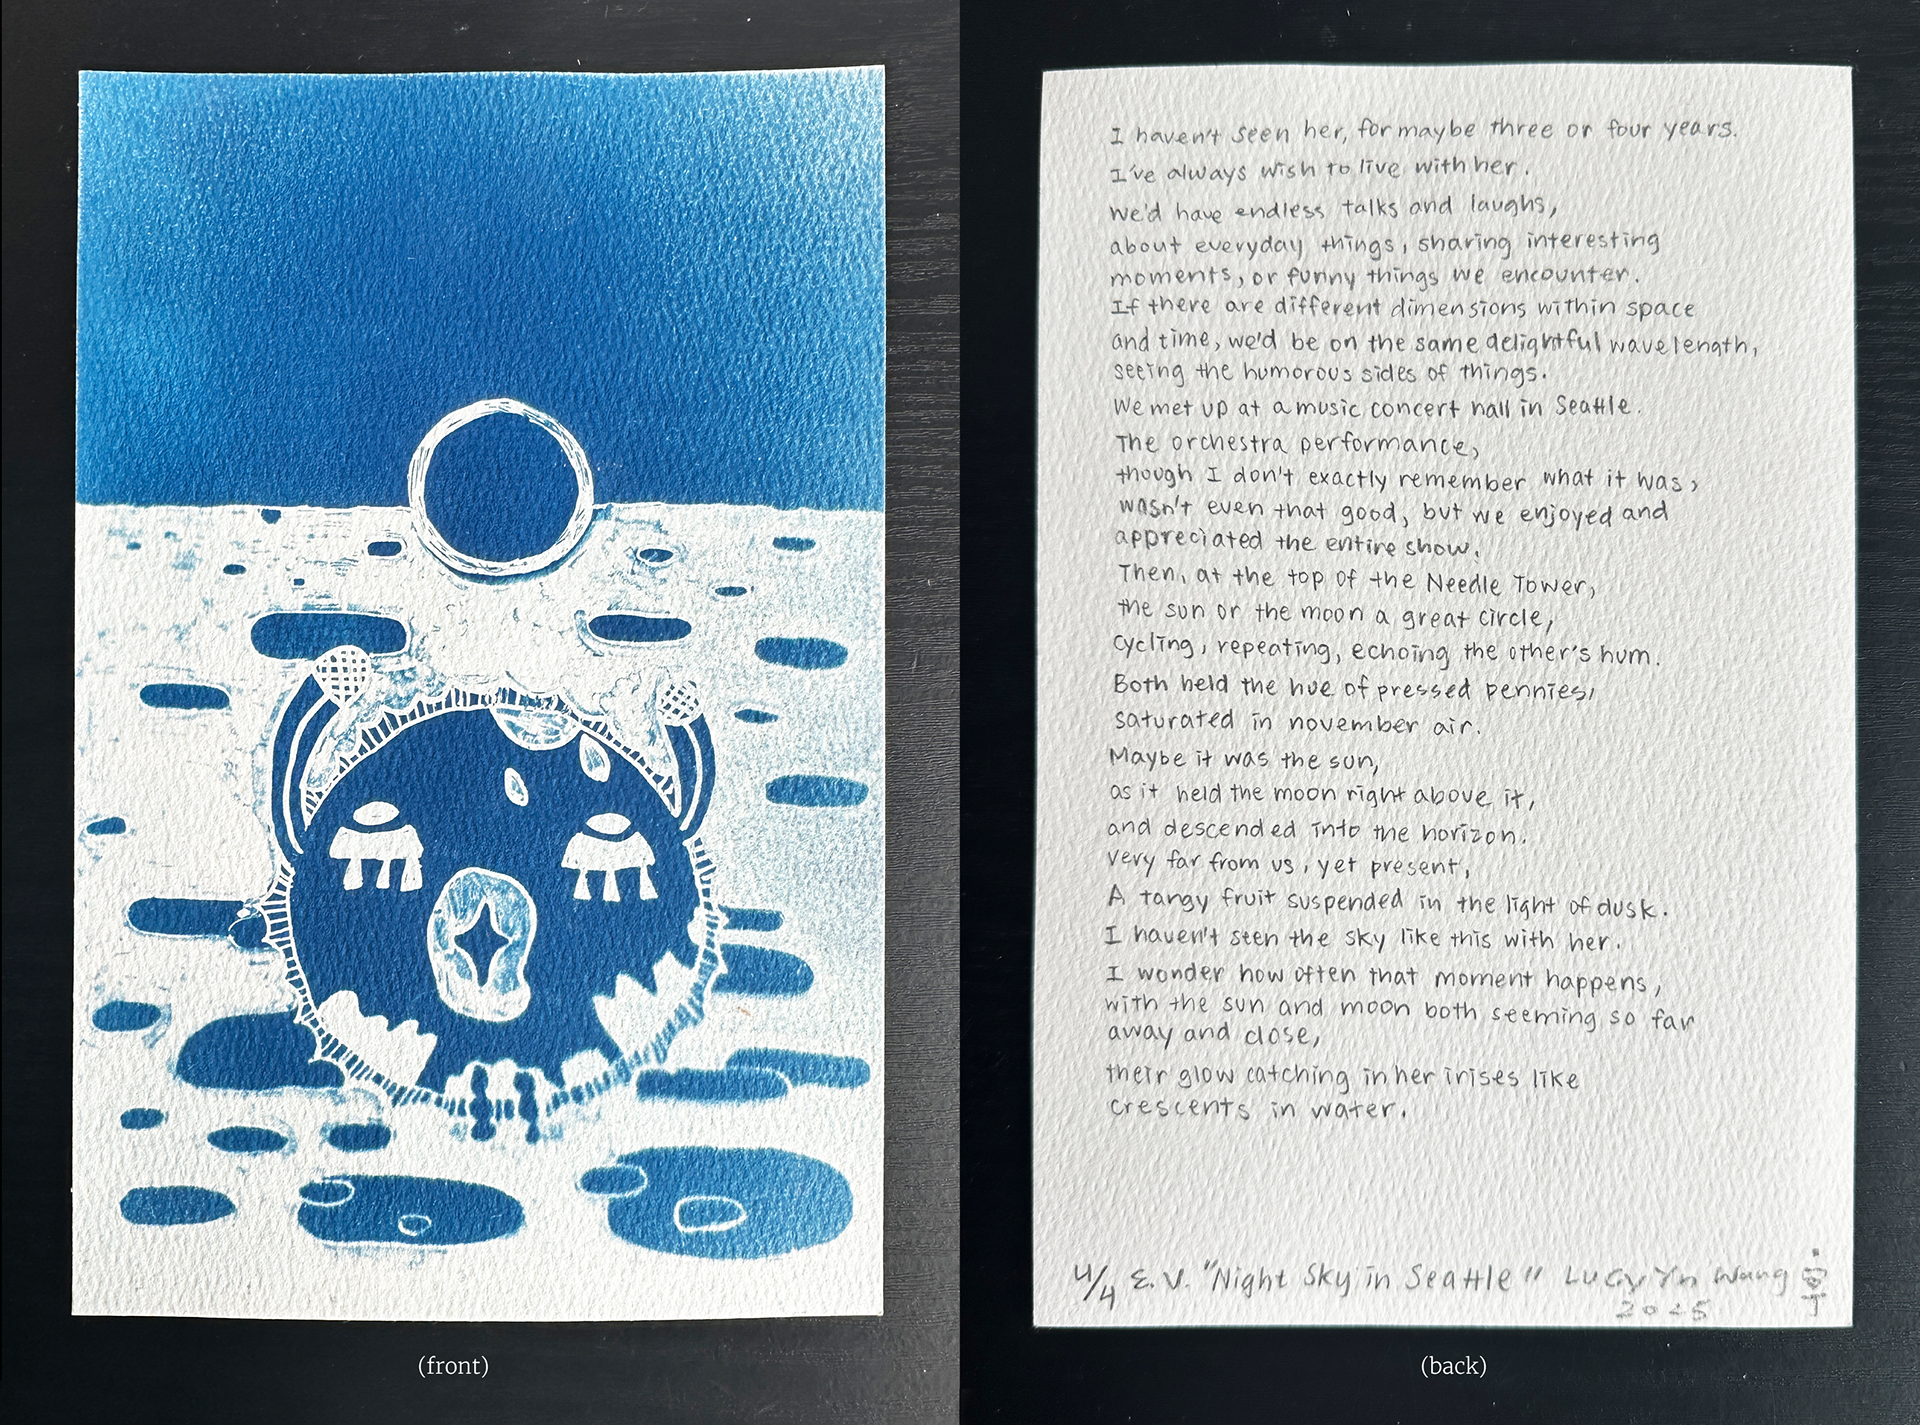 I haven't seen her, for maybe three or four years.
I've always wish to live with her.
We'd have endless talks and laughs,
about everyday things, sharing interesting
moments, or funny things we encounter.
If there are different dimensions within space
and time, we'd be on the same delightful wavelength,
seeing the humorous sides of things.
We met up at a music concert hall in Seattle.
The orchestra performance,
though I don't exactly remember what it was,
wasn't even that good, but we enjoyed and
appreciated the entire show.
Then, at the top of the Needle Tower,
the sun or the moon a great circle,
cycling, repeating, echoing the other's hum.
Both held the hue of pressed pennies,
saturated in november air.
Maybe it was the sun,
as it held the moon right above it,
and descended into the horizon.
very far from us, yet present,
A tangy fruit suspended in the light of dusk.
I haven't seen the sky like this with her.
I wonder how often that moment happens,
with the sun and moon both seeming so far
away and close,
their glow catching in her irises like
crescents in water.
4/4 E.V. "Night Sky in Seattle" Lucy Yn Wang
2025
(front)
(back)